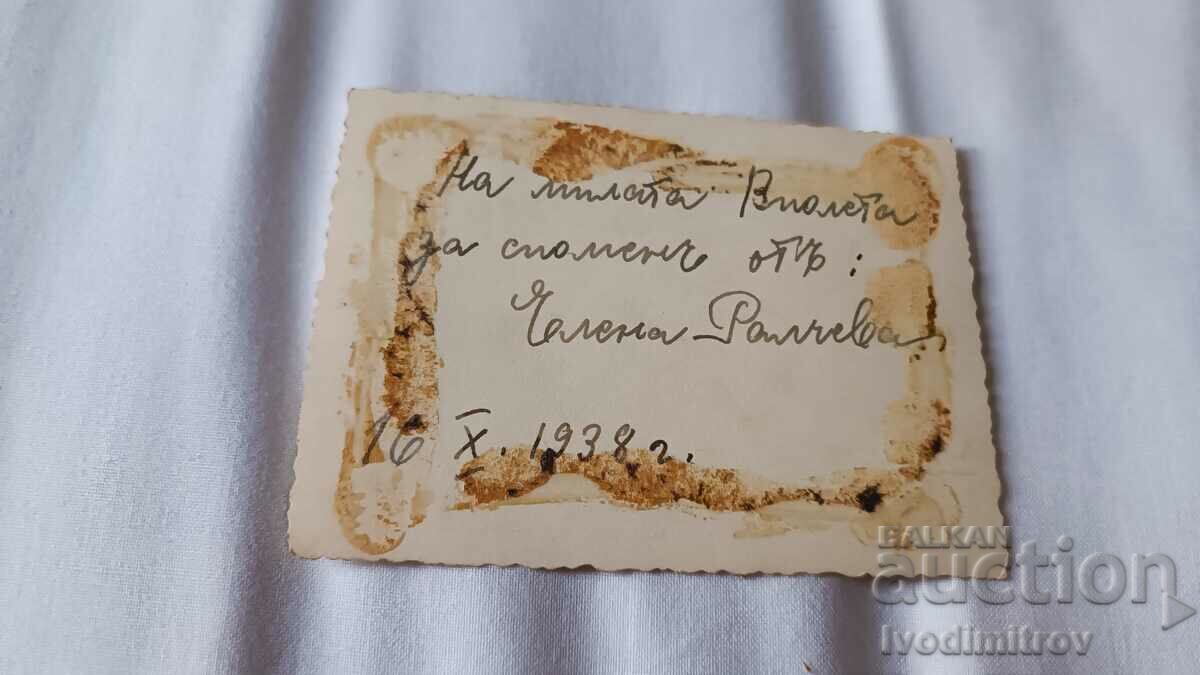 На милата Виолета
за споменъ отъ:
Елена Ралчева
16 X. 1938 г.
BALKAN
auction
Ivodimitrov